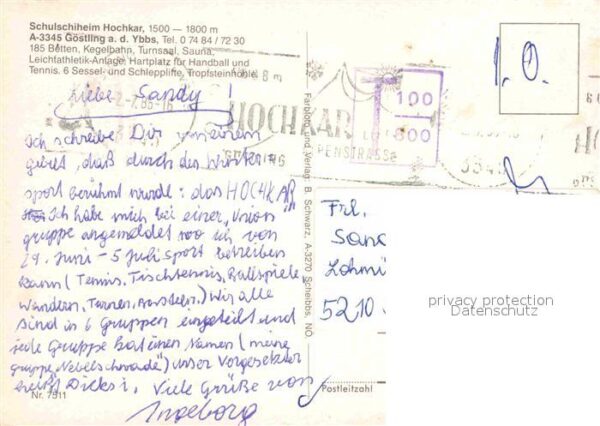 Schulschiheim Hochkar, 1500 — 1800 m
A-3345 Göstling a. d. Ybbs, Tel. 0 74 84 / 72 30
185 Betten, Kegelbahn, Turnsaal, Sauna,
Leichtathletik-Anlage, Hartplatz für Handball und
Tennis. 6 Sessel- und Schlepplifte, Tropfsteinhöhle.
Liebe Sandy!
Ich schreibe Dir von einem
gebiet, daß durch des Winter-
sport berühmt wurde: das HOCHKAR
Ich habe mich bei einer Union
gruppe angemeldet wo ich von
29. Juni - 5 Juli sport betreiben
kann (Tennis, Tischtennis, Ballspiele
Wandern, Turnen,) Wir alle
sind in 6 Gruppen eingeteilt und
jede Gruppe hat einen Namen (meine
gruppe „Nebelschwade") unser Vorgesetzter
heißt Dicksi. Viele Grüße von
Ingeborg
Nr. 7511
Farbfoto und Verlag B. Schwarz, A-3270 Scheibbs, NÖ.
HOCHKAR
100
800
I.O.
Frl.
5210
Postleitzahl
privacy protection
Datenschutz